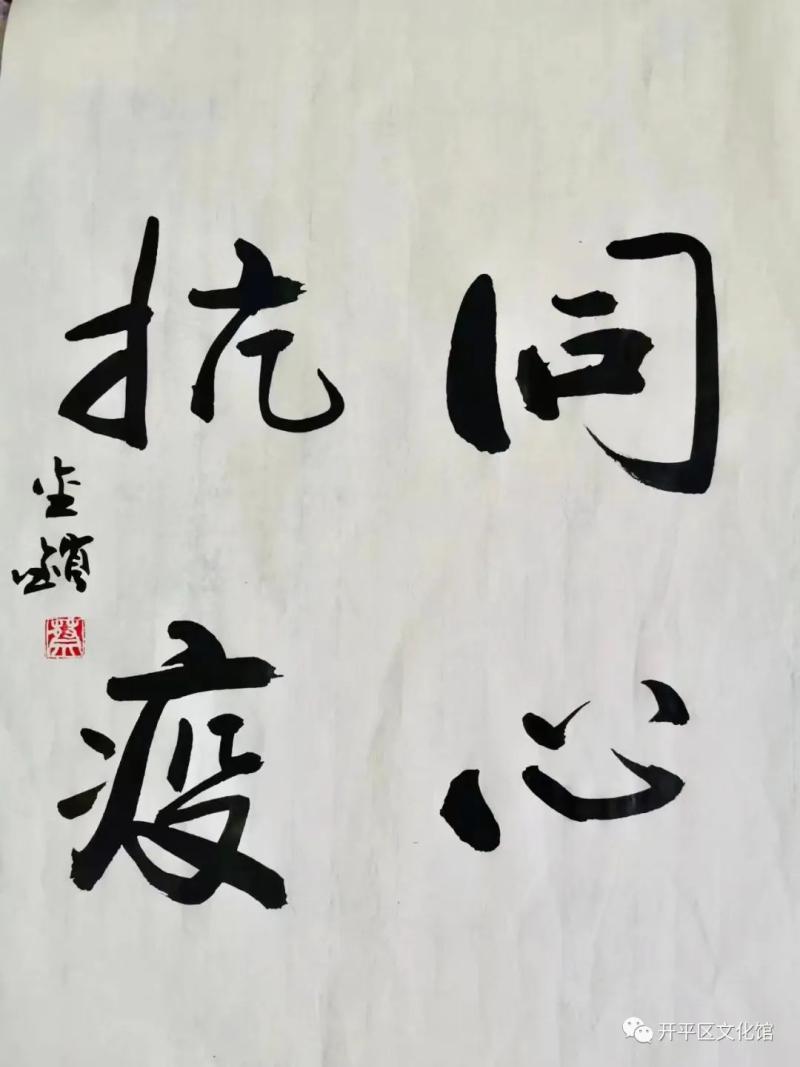 同心
抗疫
蔡
开平区文化馆